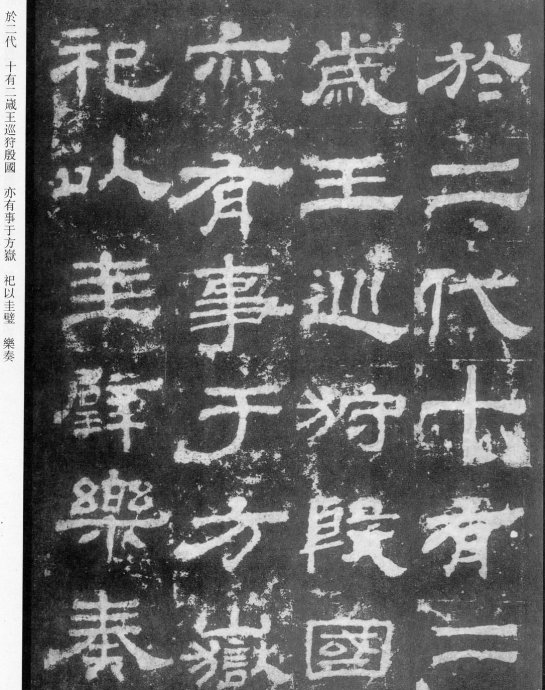 於二代十有二
歲王巡狩殷國
亦有事于方嶽
祀以圭璧樂奏
於二代 十有二歲王巡狩殷國 亦有事于方嶽 祀以圭璧 樂奏